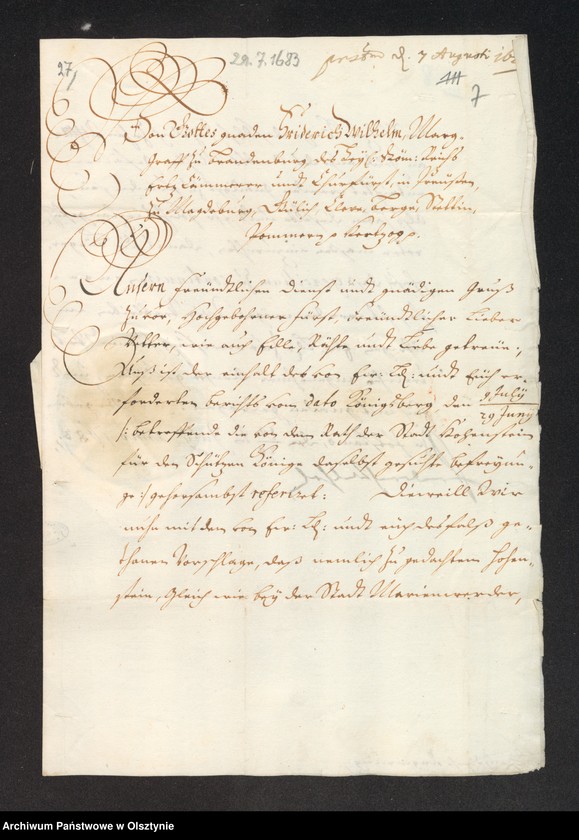 27,
29.7.1683
7 Augusti
7
Von Gottes gnaden Friderich Wilhelm, Marg-
graff zu Brandenburg des Heyl: Röm: Reichs
Ertz Cämmerer undt Churfürst, in Preußen,
zu Magdeburg, Gülich, Cleve, Berge, Stettin,
Pommern p Hertzog p.
Unsern freündtlichen dienst undt gnädigen gruß
zuvor, Hochgebohrner Fürst, freündtlicher Lieber
Vetter, wie auch Edle, Räthe undt Liebe getreüe,
Unß ist der einhalt des von Ew: Ld: undt Eüch er-
forderten berichts vom dato Königsberg, den 9 July
29 Juny
/: betreffende die von dem Rath der Stadt Hohenstein
für den Schützen Könige daselbst gesuchte befreyun-
ge :/ gehorsambst referiret: Dieweill Wir
nuhn mit dem von Ew: Ld: undt eüch desfalß ge-
thanen Vorschlage, daß nemlich zu gedachtem Hohen-
stein, Gleich wie bey der Stadt Marienwerder,
Archiwum Państwowe w Olsztynie